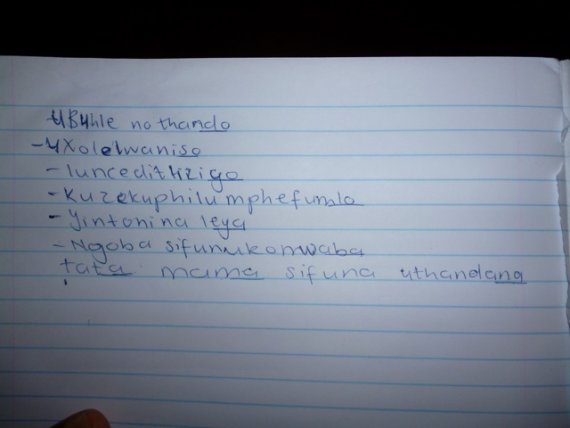 UBuhle nothando
- UXolelwaniso
- luncedithizigo
- Kuzekuphilumphefumlo
- Yintonina leya
- Ngoba sifunukonwaba
tata mama sifuna uthandana